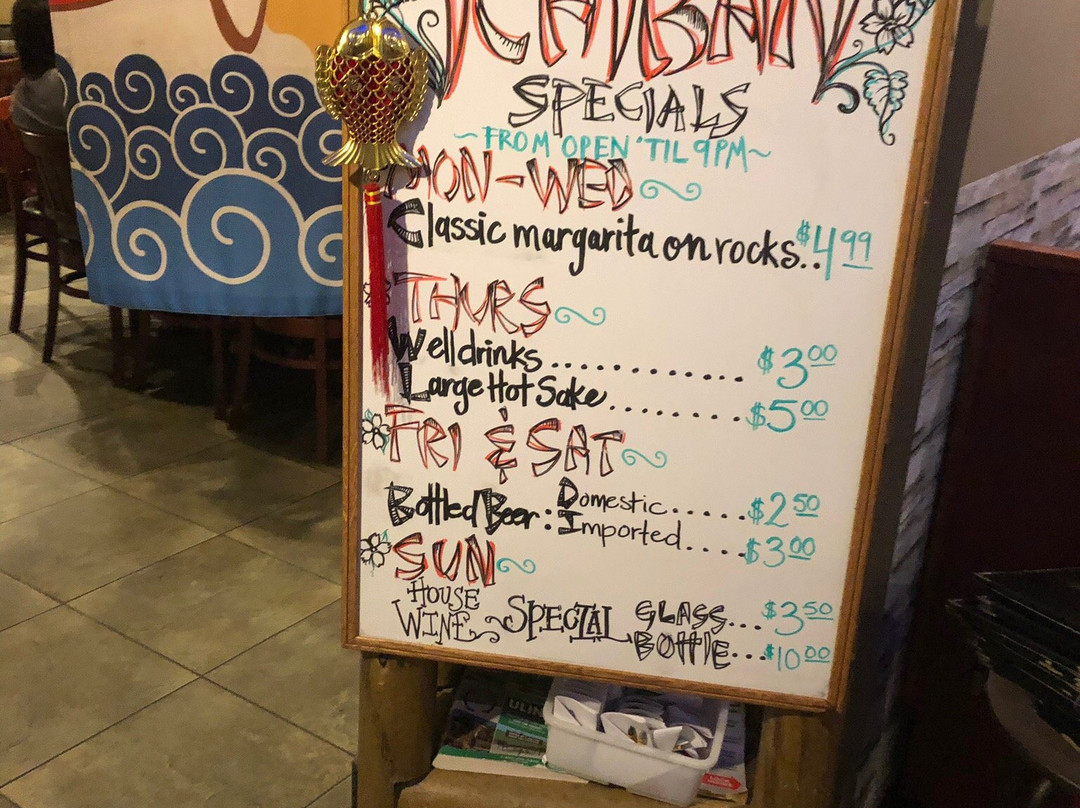 ICHIBAN
SPECIALS
~FROM OPEN 'TIL 9PM~
MON-WED
Classic margarita on rocks..$4.99
THURS
Well drinks............$3.00
Large Hot Sake.........$5.00
FRI & SAT
Bottled Beer: Domestic......$2.50
Imported....$3.00
SUN
HOUSE WINE SPECIAL GLASS...$3.50
BOTTLE...$10.00